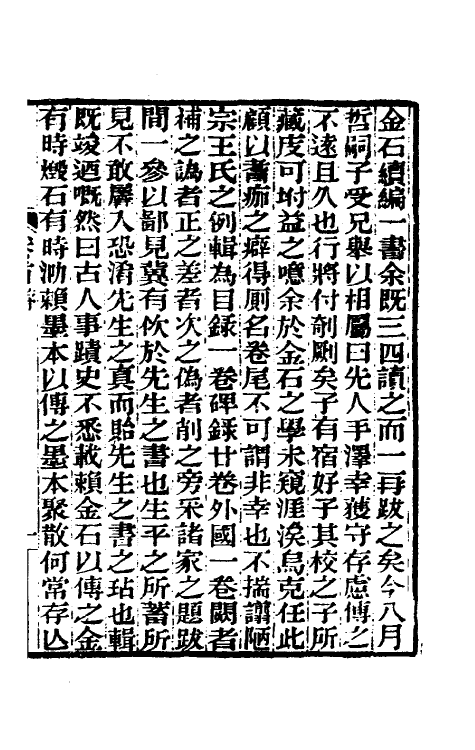 金石續編一書余既三四讀之而一再跋之矣今八月
哲嗣子受兄舉以相屬曰先人手澤幸獲守存慮傳之
不遠且久也行將付剞劂矣子有宿好子其校之子所
藏庋可坿益之噫余於金石之學未窺涯涘烏克任此
顧以嗇痂之癖得廁名卷尾不可謂非幸也不揣譾陋
宗王氏之例輯為目錄一卷碑錄廿卷外國一卷闕者
補之譌者正之差者次之偽者削之旁采諸家之題跋
間一參以鄙見冀有佽於先生之書也生平之所蓄所
見不敢羼入恐淆先生之真而貽先生之書之玷也輯
既竣迺嘅然曰古人事蹟史不悉載賴金石以傳之金
有時燬石有時泐賴墨本以傳之墨本聚散何常存亾
卷首序
一